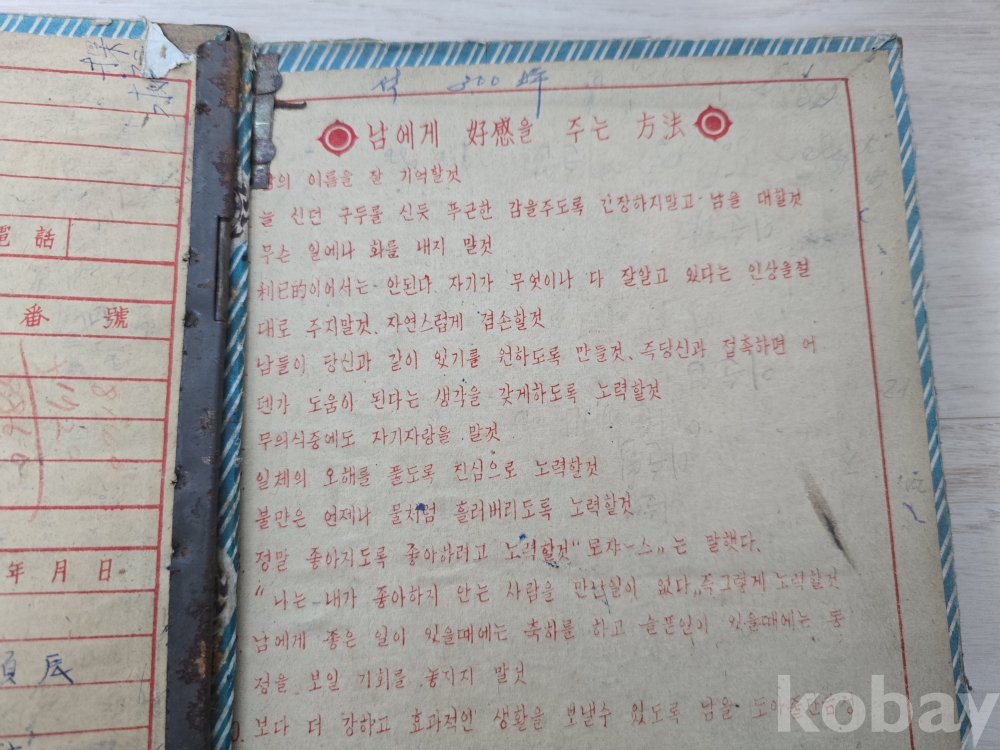 電話
番號
年月日
석 300坪
남에게 好感을 주는 方法
의 이름을 잘 기억할것
늘 신던 구두를 신듯 푸근한 감을주도록 긴장하지말고 남을 대할것
무슨 일에나 화를 내지 말것
利己的이어서는 안된다. 자기가 무엇이나 다 잘알고 있다는 인상을절
대로 주지말것. 자연스럽게 겸손할것
남들이 당신과 같이 있기를 원하도록 만들것. 즉당신과 접촉하면 어
덴가 도움이 된다는 생각을 갖게하도록 노력할것
무의식중에도 자기자랑을 말것
일체의 오해를 풀도록 진심으로 노력할것
불만은 언제나 물처럼 흘러버리도록 노력할것
정말 좋아지도록 좋아하려고 노력할것 "로쟈-스„는 말했다.
"나는 내가 좋아하지 안는 사람을 만난일이 없다„즉그렇게 노력할것
남에게 좋은 일이 있을때에는 축하를 하고 슬픈일이 있을때에는 동
정을 보일 기회를 놓지지 말것
보다 더 강하고 효과적인 생활을 보낼수 있도록 남을
kobay